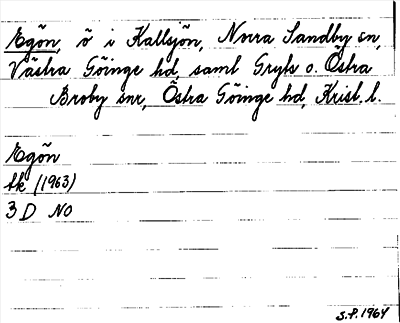 Egön, ö i Kallsjön, Norra Sandby sn,
Västra Göinge hd, samt Gryts o. Östra
Broby snr, Östra Göinge hd, Krist. l.
Egön
tk (1963)
3 D NO
S.P. 1964